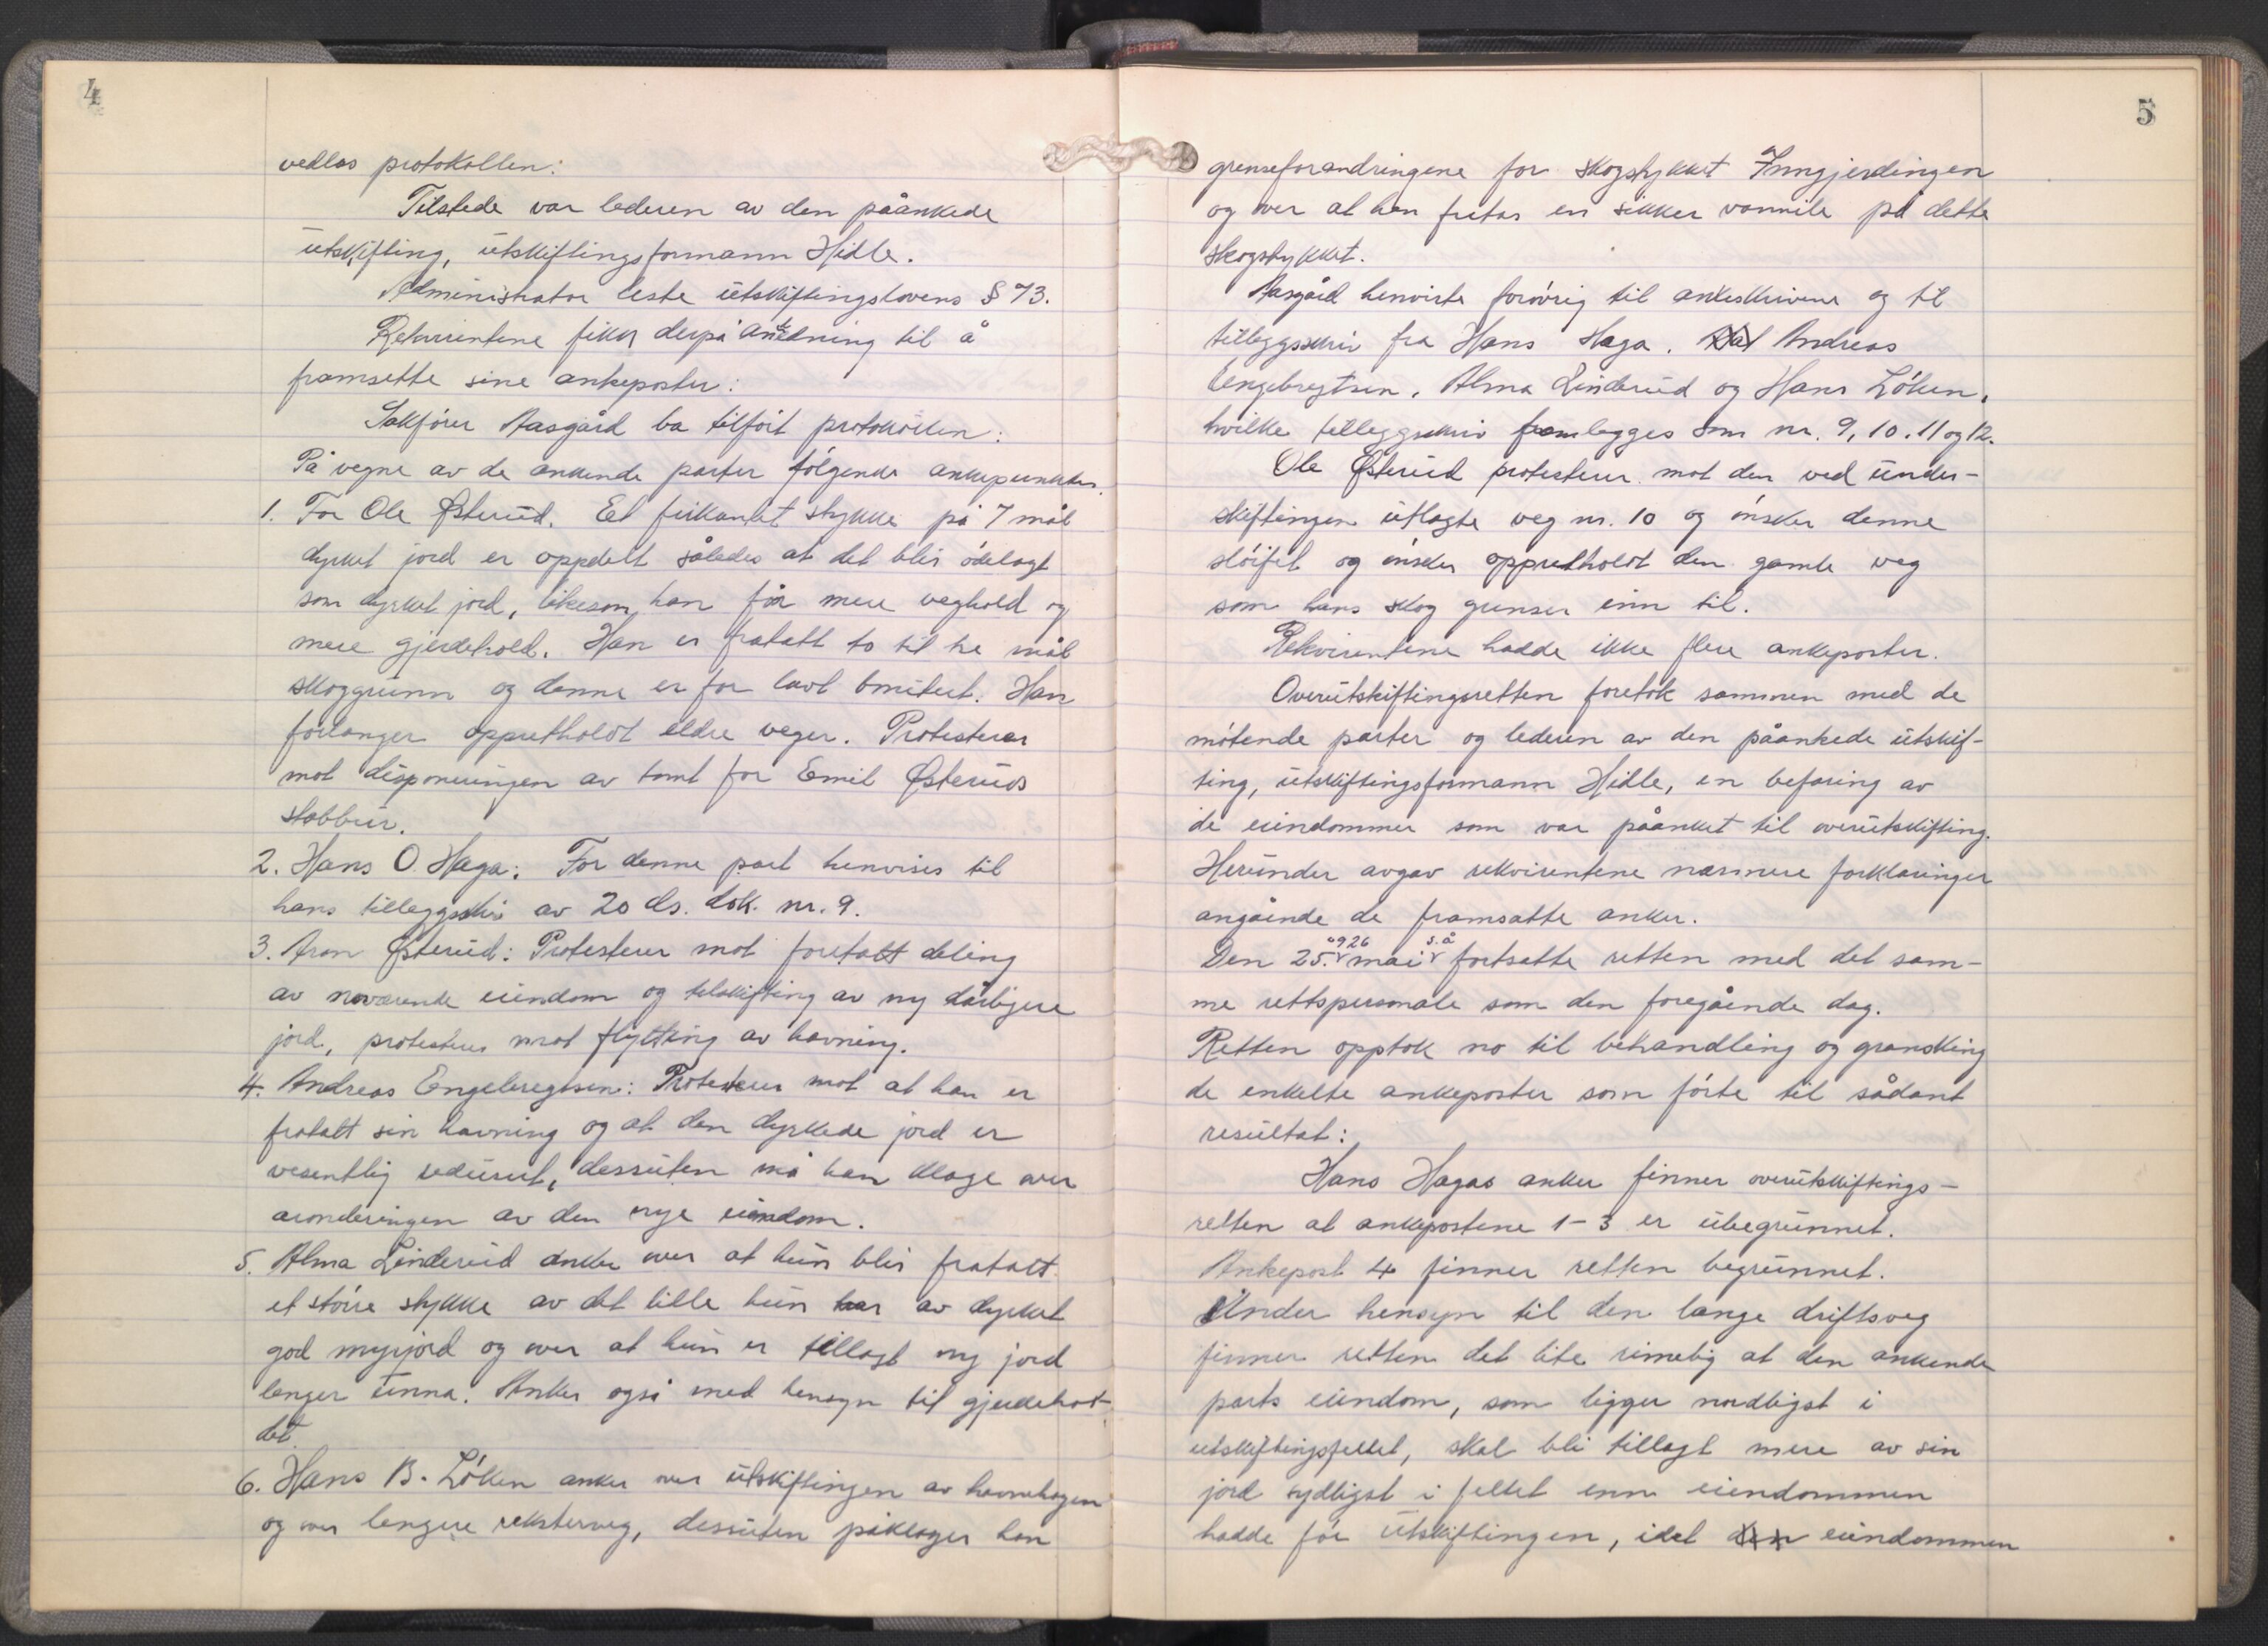 4
vedlas protokollen:
Tilstede var lederen av den påankede
utskifting, utskiftingsformann Hidle.
Administrator leste utskiftingslovens § 73.
Rekvirentene fikk derpå anledning til å
framsette sine ankeposter:
Sakfører Aasgård ba tilført protokollen:
På vegne av de ankende parter følgende ankepunkter.
1. For Ole Østerud. Et firkantet stykke på 7 mål
dyrket jord er oppdelt således at det blir ødelagt
som dyrket jord, likesom han får mere veghold og
mere gjerdehold. Han er fratatt to til tre mål
skoggrunn og denne er for lavt bonitert. Han
forlanger oppretholdt eldre veger. Protesterer
mot disponeringen av tomt for Emil Østeruds
stabbur.
2. Hans O. Haga: For denne part henvises til
hans tilleggsskriv av 20 ds. dok. nr. 9.
3. Aron Østerud: Protesterer mot foretatt deling
av nåværende eiendom og tilskifting av ny dårligere
jord, protesterer mot flytting av havning.
4. Andreas Engebregtsen: Protesterer mot at han er
fratatt sin havning og at den dyrkede jord er
vesentlig redusert, dessuten må han klage over
aronderingen av den nye eiendom.
5. Alma Linderud anker over at hun blir fratatt
et større stykke av det lille hun har av dyrket
god myrjord og over at hun er tillagt ny jord
lenger unna. Anker også med hensyn til gjerdehol-
det.
6. Hans B. Løken anker over utskiftingen av havnehagen
og over lengere reksterveg, dessuten påklager han
5
grenseforandringene for skogstykket Inngjerdingen
og over at han fratas en sikker vannile på dette
skogstykket.
Aasgård henviste forøvrig til ankeskrivene og til
tilleggsskriv fra Hans Haga. Andreas
Engebregtsen, Alma Linderud og Hans Løken,
hvilke tilleggsskriv framlegges som nr. 9, 10, 11 og 12.
Ole Østerud protesterer mot den ved under-
skiftingen utlagte veg nr. 10 og ønsker denne
sløifet og ønsker oppretholdt den gamle veg
som hans skog grenser inn til.
Rekvirentene hadde ikke flere ankeposter.
Overutskiftingsretten foretok sammen med de
møtende parter og lederen av den påankede utskif-
ting, utskiftingsformann Hidle, en befaring av
de eiendommer som var påanket til overutskifting.
Herunder avgav rekvirentene nærmere forklaringer
angående de framsatte anker.
Den 25. og 26 mai s.å fortsatte retten med det sam-
me rettspersonale som den foregående dag.
Retten opptok no til behandling og gransking
de enkelte ankeposter som førte til sådant
resultat:
Hans Hagas anker finner overutskiftings-
retten at ankepostene 1-3 er ubegrunnet.
Ankepost 4 finner retten begrunnet.
Under hensyn til den lange driftsveg
finner retten det lite rimelig at den ankende
parts eiendom, som ligger nordligst i
utskiftingsfeltet, skal bli tillagt mere av sin
jord sydligst i feltet enn eiendommen
hadde før utskiftingen, idet den eiendommen